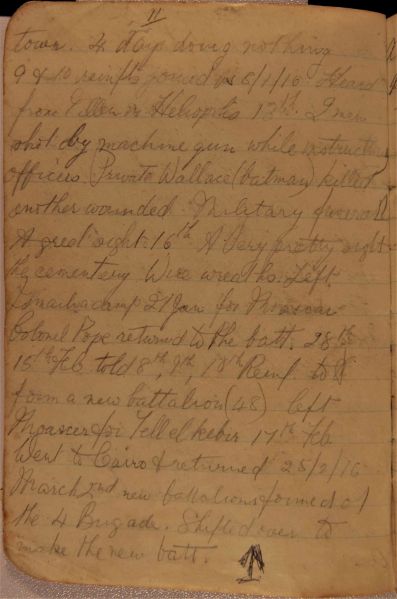 11
town. 4 days doing nothing
9 & 10 reinfts joined us 8/1/16 Heard
from Ellen in Heliopolis 13th. 2 men
shot by machine gun while instructing
officers. Private Wallace (batman) killed
another wounded. Military funeral
A great sight. 16th A Very pretty sight
the cementery Wire wreaths. Left
camp 21 Jan for Moascar
Colonel Pope returned to the batt. 28th
15th Feb told 8th, 9th, 10th Reinf. to
form a new battalion (48) left
Moascar for Tell el Kebir 17th Feb
Went to Cairo & returned 25/2/16
March 2nd new battalions formed of
the 4 Brigade. Shifted over to
make the new batt.